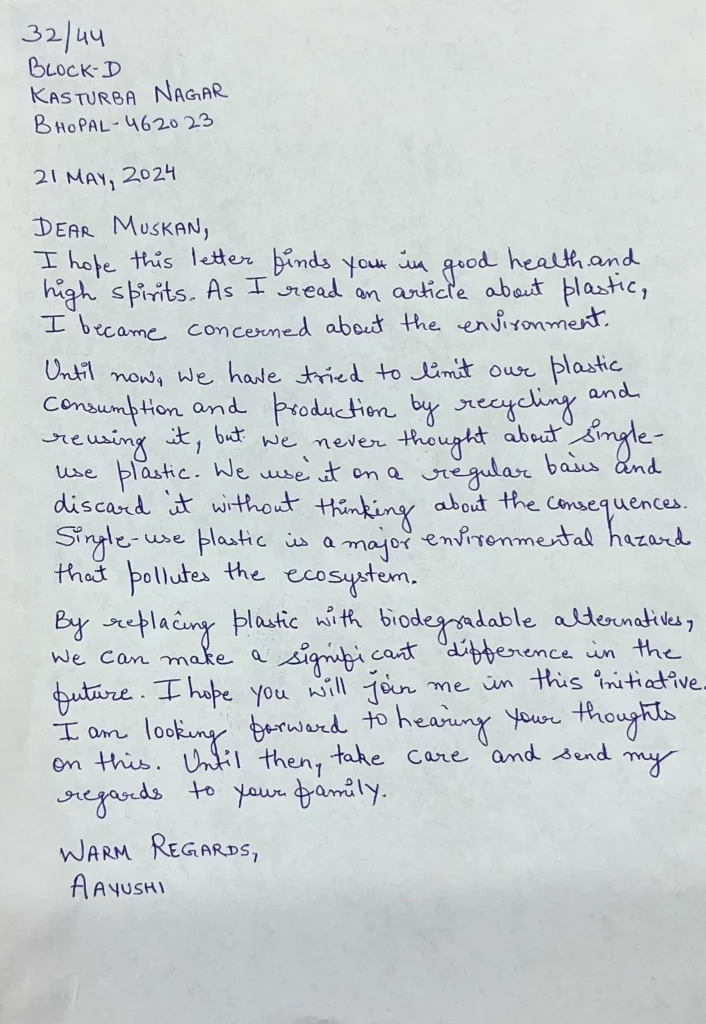 32/44
BLOCK-D
KASTURBA NAGAR
BHOPAL-462023
21 MAY, 2024
DEAR MUSKAN,
I hope this letter finds you in good health and
high spirits. As I read an article about plastic,
I became concerned about the environment.
Until now, we have tried to limit our plastic
consumption and production by recycling and
reusing it, but we never thought about single-
use plastic. We use it on a regular basis and
discard it without thinking about the consequences.
Single-use plastic is a major environmental hazard
that pollutes the ecosystem.
By replacing plastic with biodegradable alternatives,
we can make a significant difference in the
future. I hope you will join me in this initiative.
I am looking forward to hearing your thoughts
on this. Until then, take care and send my
regards to your family.
WARM REGARDS,
AAYUSHI